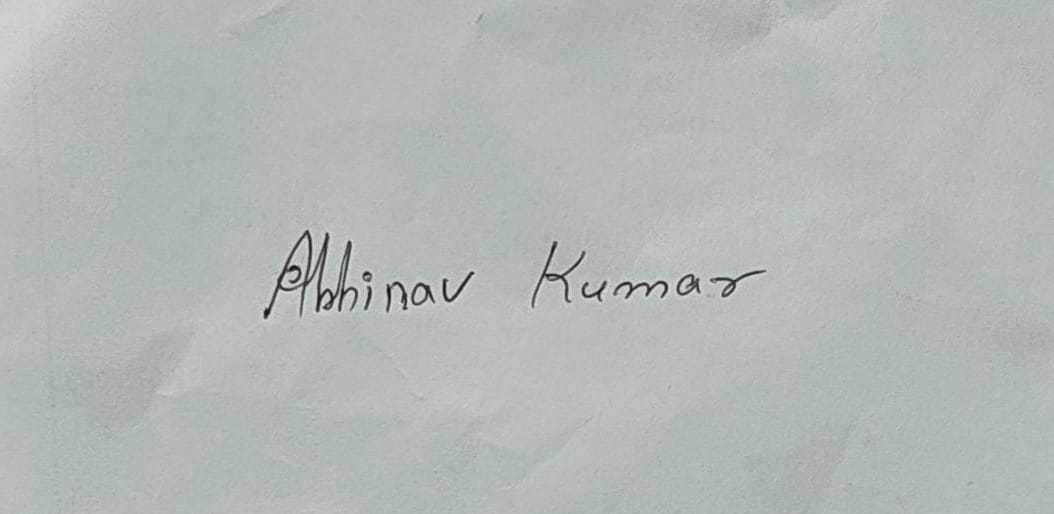 Abhinav Kumar